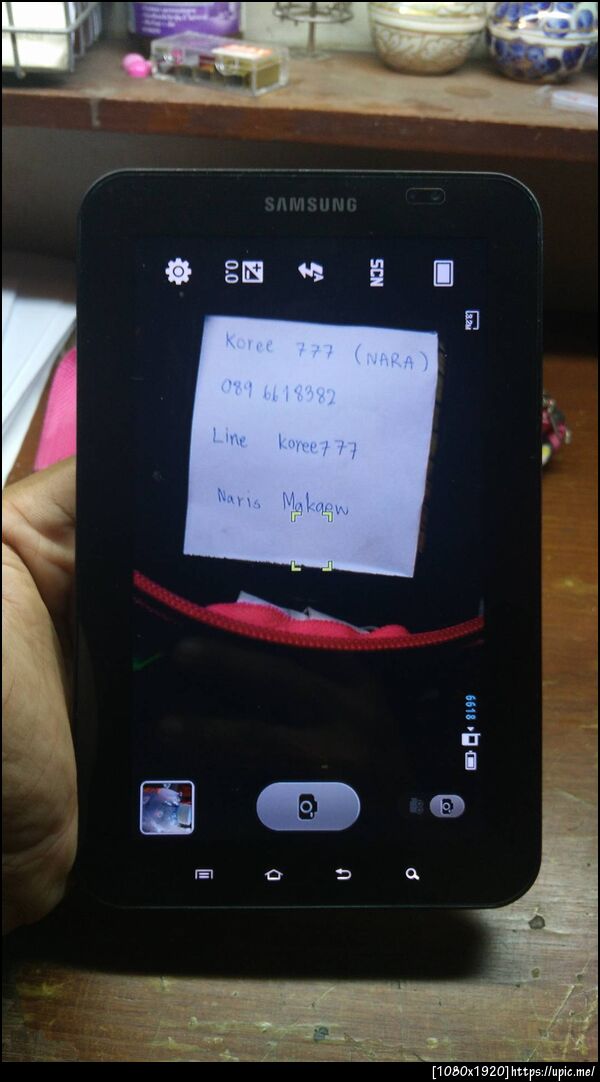 SAMSUNG
0.0
SCN
3.2M
Koree 777 (NARA)
089 6618382
Line koree777
Naris Makaew
6618
[1080x1920]https://upic.me/